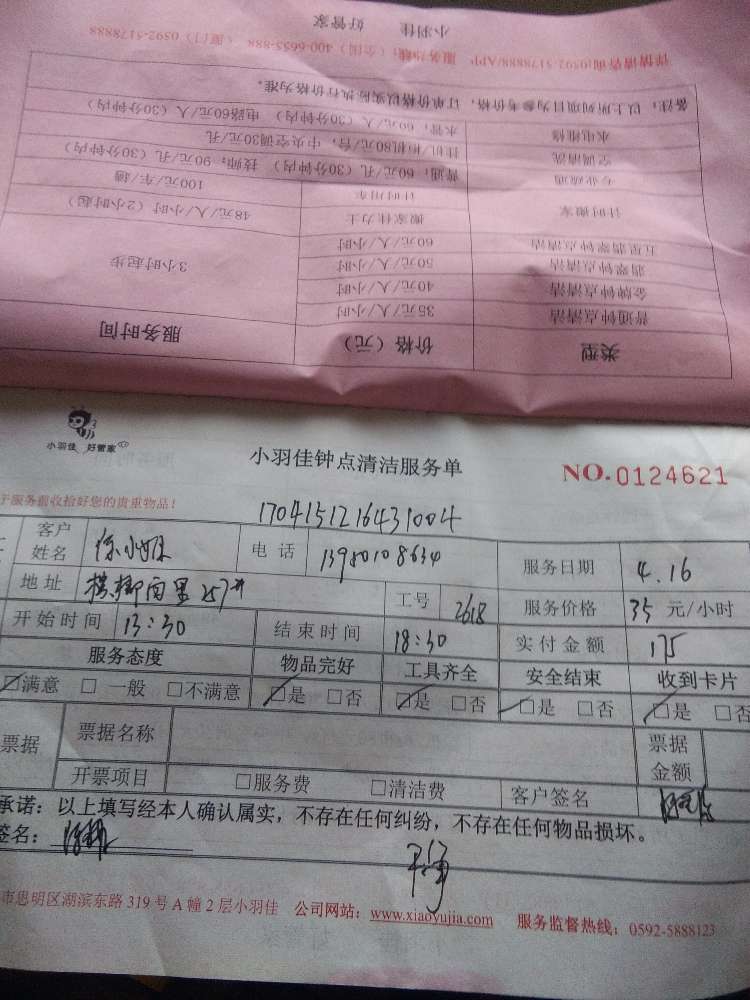 类型 价格（元） 服务时间
普通钟点清洁 35元/人/小时
金牌钟点清洁 40元/人/小时
翡翠钟点清洁 50元/人/小时 3小时起步
五星翡翠钟点清洁 60元/人/小时
计时搬家 搬家佳力士 48元/人/小时（2小时起）
计时用车 100元/车/趟
专业疏通 普通：60元/孔（30分钟内） 技师：90元/孔（30分钟）
空调清洗 挂机/柜机80元/台，中央空调30元/孔
水电维修 水管，60元/人（30分钟内）电路60元/人（30分钟内）
备注：以上所列项目为参考价格，订单价格以实际执行价格为准。
详情请咨询0592-5178888/APP， 服务热线：（全国）400-6655-888 （厦门）0592-5178888
小羽佳 好管家
小羽佳 好管家
小羽佳钟点清洁服务单
NO.0124621
于服务前收拾好您的贵重物品！
1704151216431004
客户姓名 电话 13980108634 服务日期 4.16
地址 工号 2618 服务价格 35 元/小时
开始时间 13:30 结束时间 18:30 实付金额 175
服务态度 物品完好 工具齐全 安全结束 收到卡片
☑满意 □一般 □不满意 ☑是 □否 ☑是 □否 ☑是 □否 ☑是 □否
票据 票据名称 票据金额
开票项目 □服务费 □清洁费 客户签名
承诺：以上填写经本人确认属实，不存在任何纠纷，不存在任何物品损坏。
签名：
市思明区湖滨东路319号A幢2层小羽佳 公司网站：www.xiaoyujia.com 服务监督热线：0592-5888123